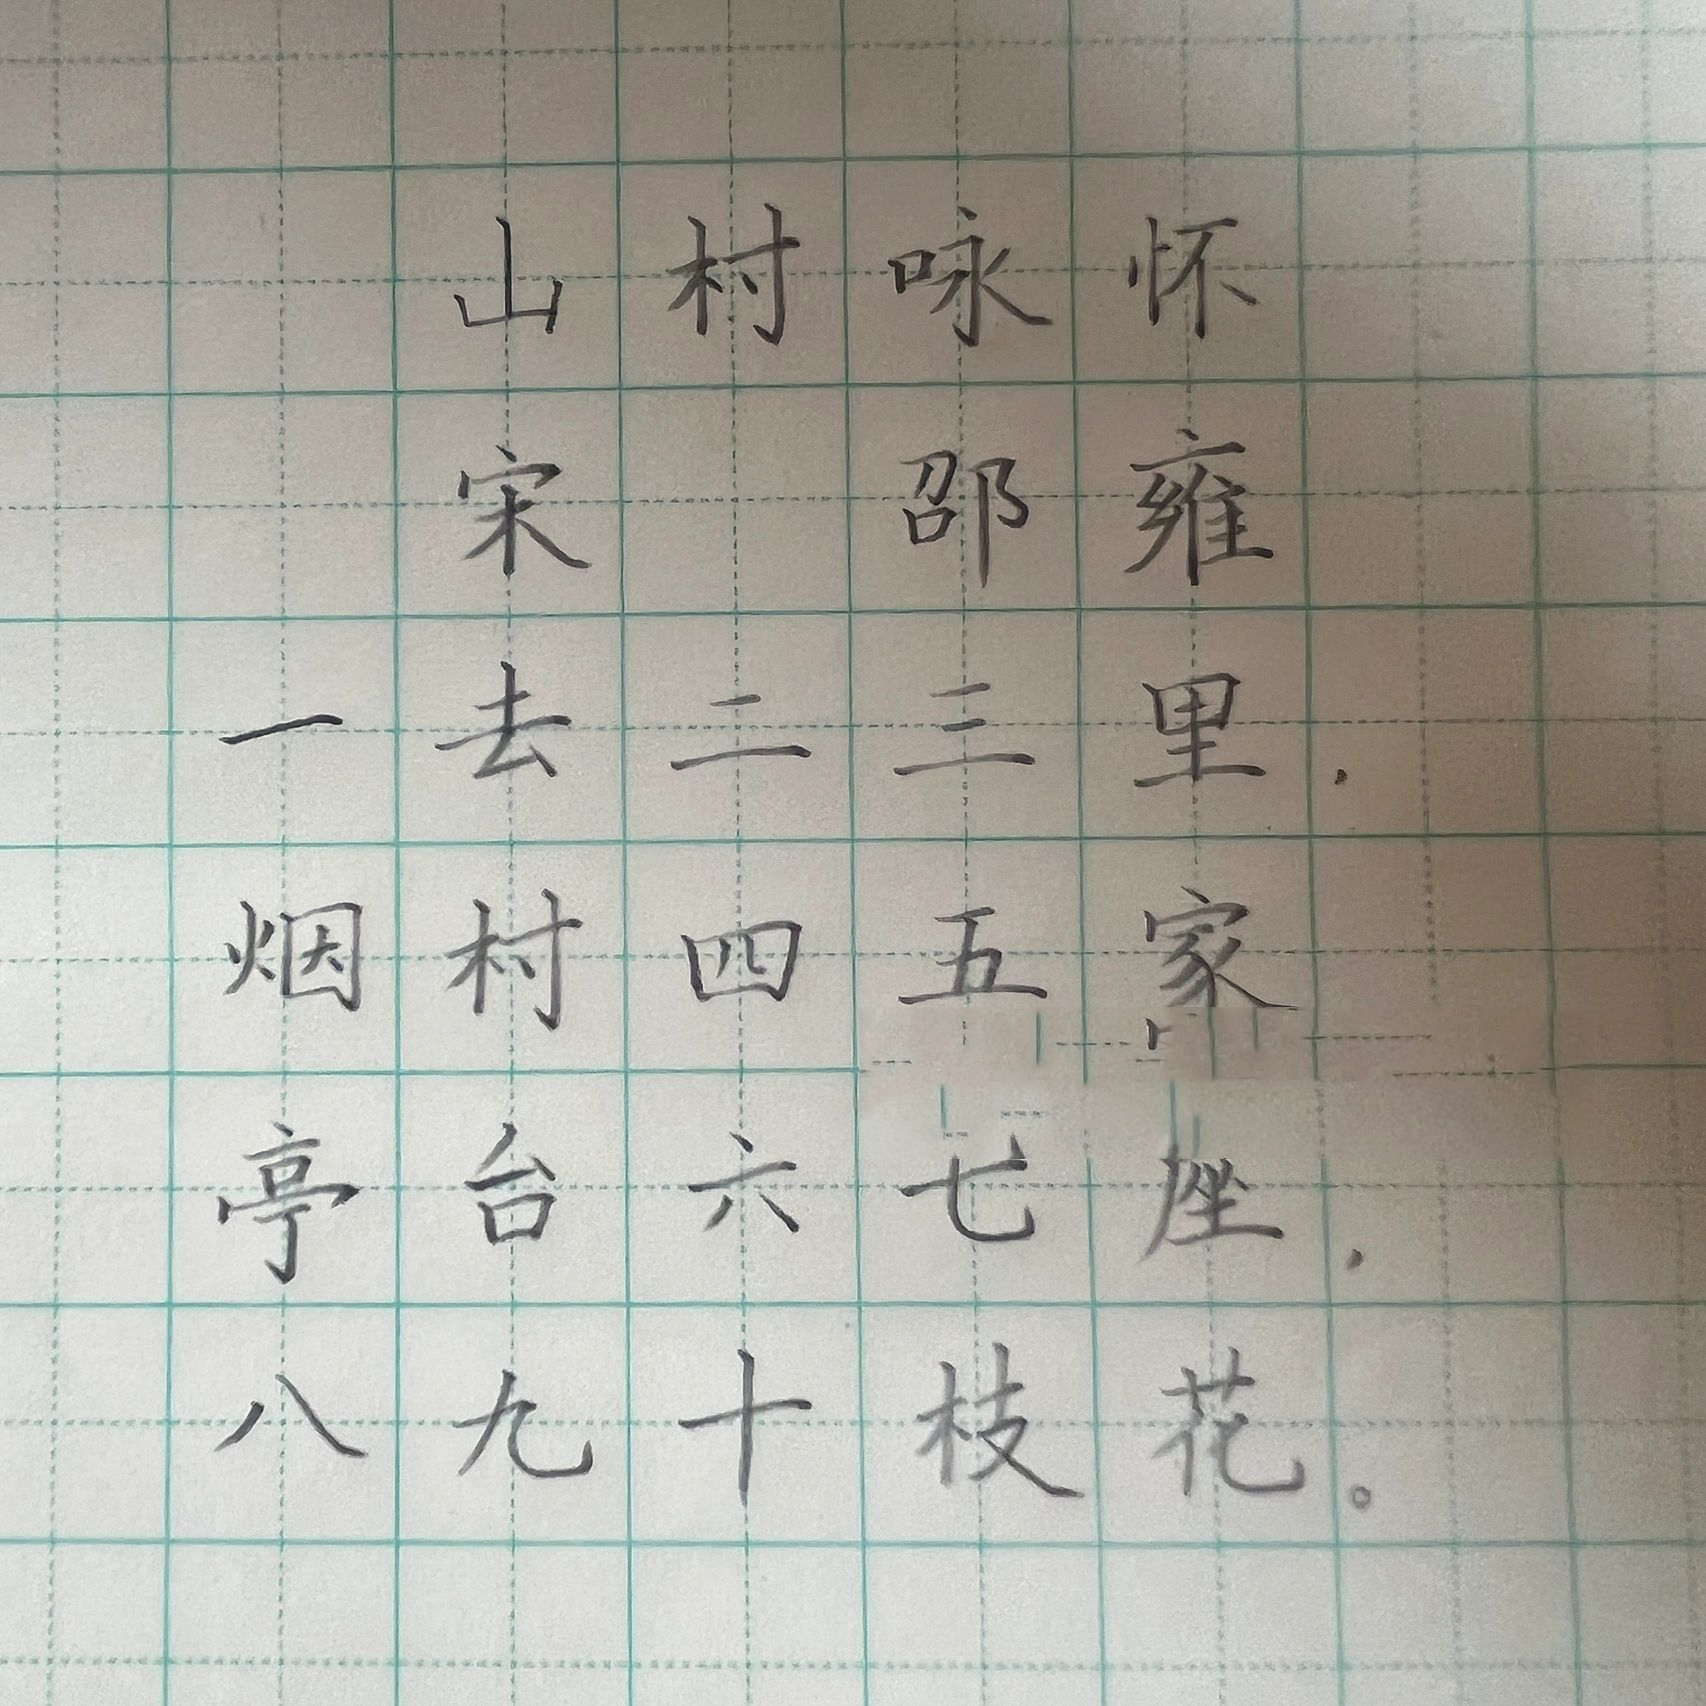 山村咏怀
宋 邵雍
一去二三里，
烟村四五家
亭台六七座，
八九十枝花。